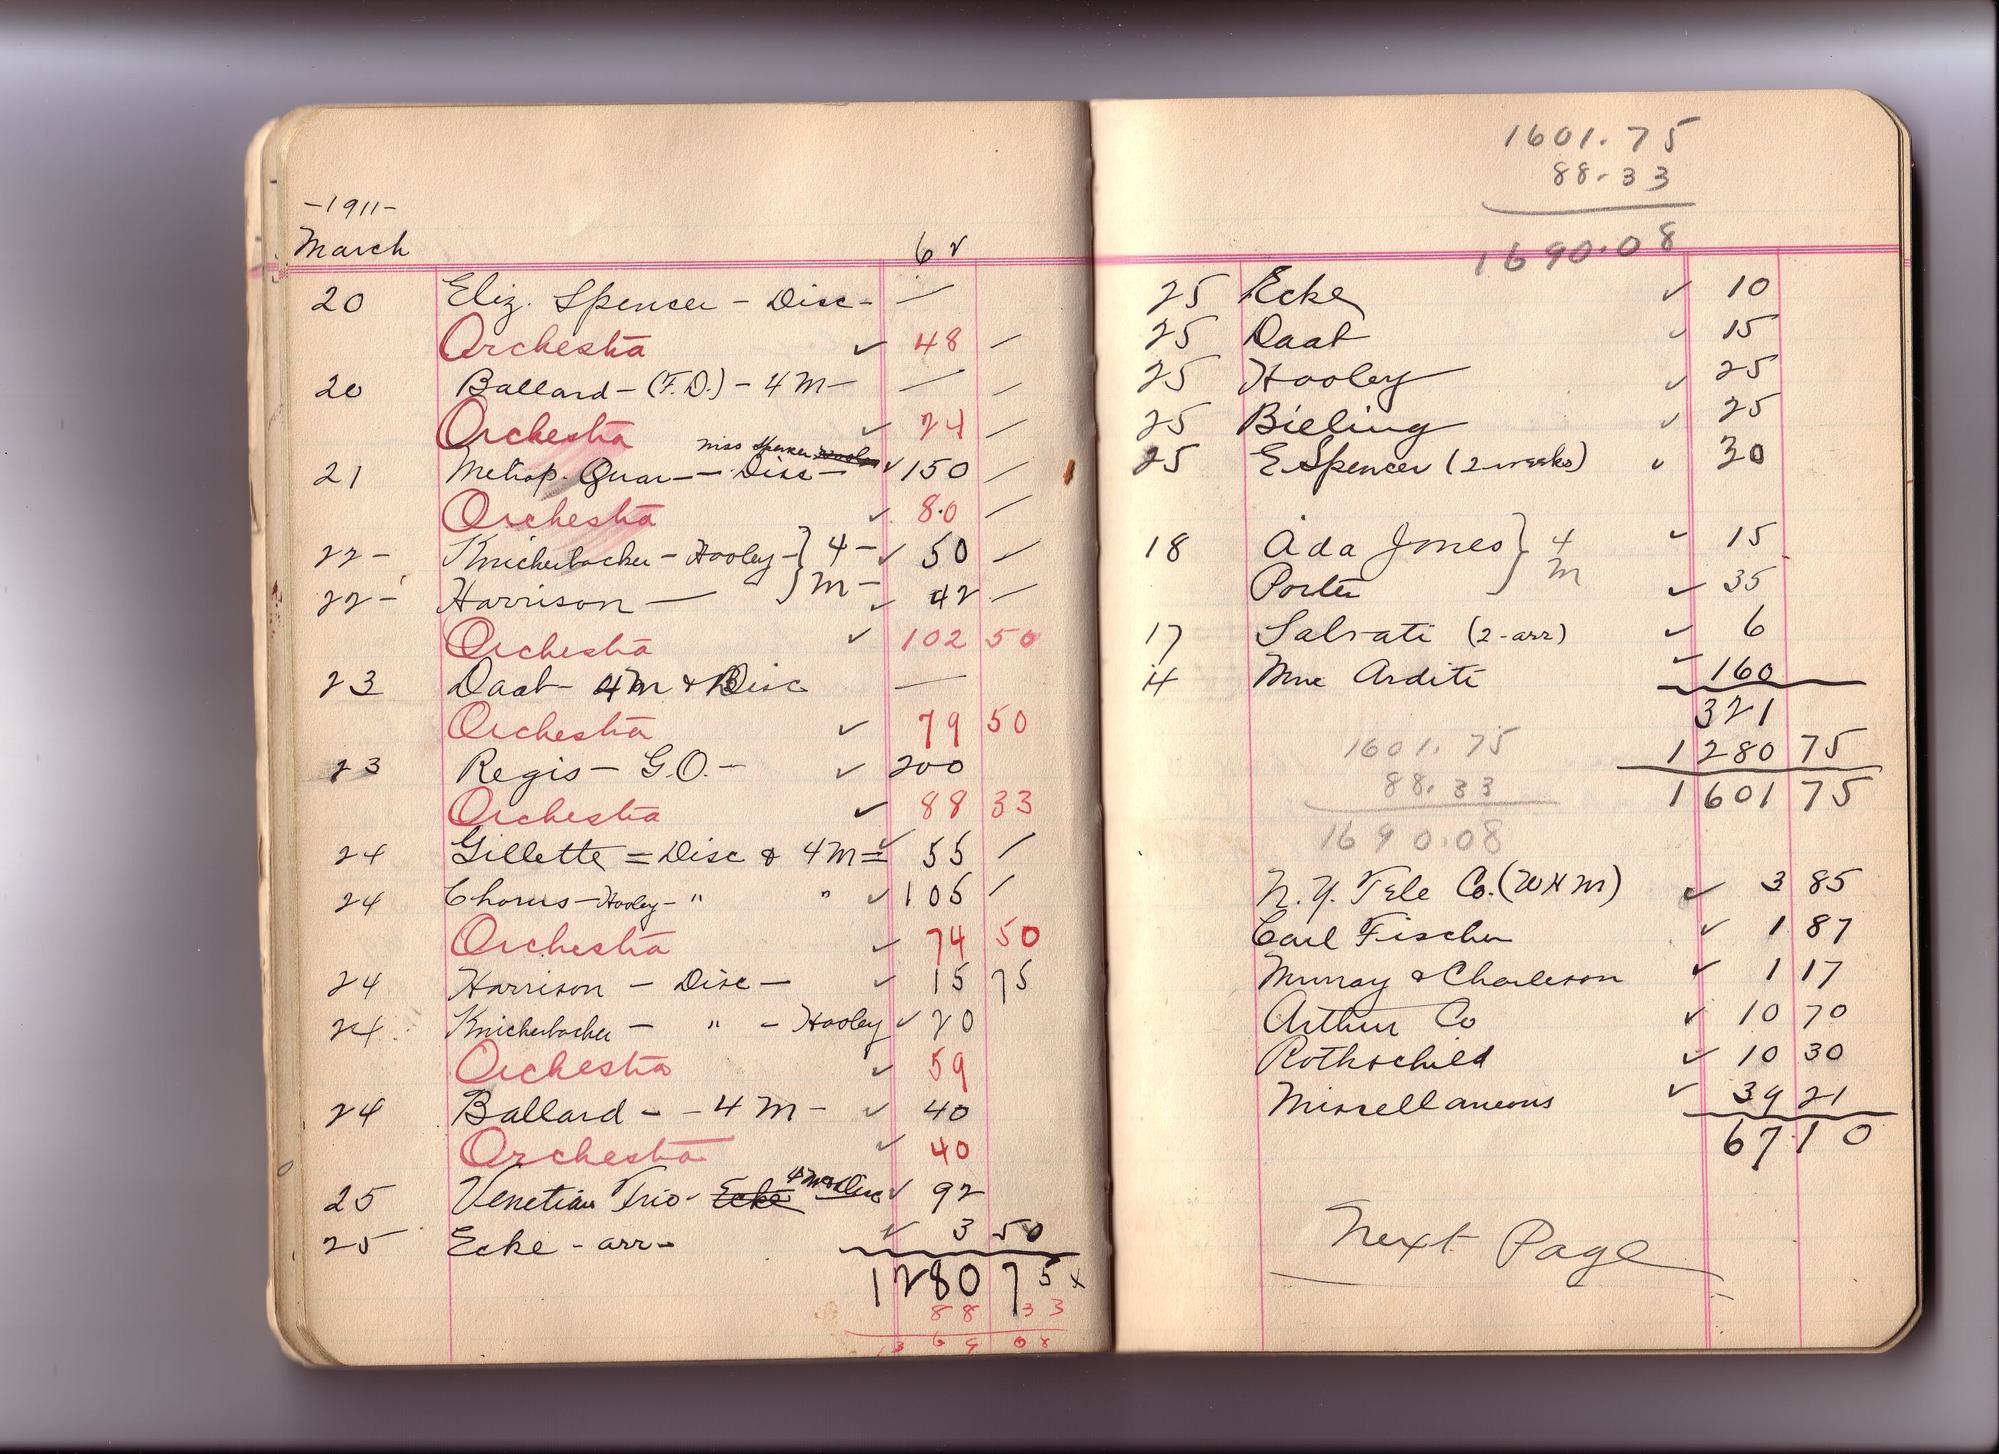 -1911-
March 62
20 Eliz. Spencer - Disc - —
Orchestra ✓ 48 —
20 Ballard - (F.D.) - 4M - — —
Orchestra ✓ 24 —
miss Spencer
21 Metrop. Quar — Disc — ✓ 150 —
Orchestra ✓ 80 —
22 - Knickerbocker - Hooley - } 4 - ✓ 50 —
22 - Harrison — } M - ✓ 42 —
Orchestra ✓ 102 50
23 Daab - 4M & Disc —
Orchestra ✓ 79 50
23 Regis - G.O. - ✓ 200
Orchestra ✓ 88 33
24 Gillette = Disc & 4M = ✓ 55 —
24 Chorus - Hooley - " " ✓ 105 —
Orchestra ✓ 74 50
24 Harrison - Disc - ✓ 15 75
24 Knickerbocker - " - Hooley ✓ 20
Orchestra ✓ 59
24 Ballard - - 4M - ✓ 40
Orchestra ✓ 40
4M & Disc
25 Venetian Trio - Ecke ✓ 92
25 Ecke - arr - ✓ 3 50
1280 75 x
88 33
1369 08
1601.75
88.33
1690.08
25 Ecke ✓ 10
25 Daab ✓ 15
25 Hooley ✓ 25
25 Bieling ✓ 25
25 E Spencer (2 weeks) ✓ 30
18 Ada Jones } 4 ✓ 15
Porter } M ✓ 35
17 Salvati (2-arr) ✓ 6
Mme Arditi ✓ 160
321
1601.75 1280 75
88.33 1601 75
1690.08
N.Y. Tele Co. (WHM) ✓ 3 85
Carl Fischer ✓ 1 87
Murray & Charleson ✓ 1 17
Arthur Co ✓ 10 70
Rothschild ✓ 10 30
Missellaneous ✓ 39 21
67 10
Next Page